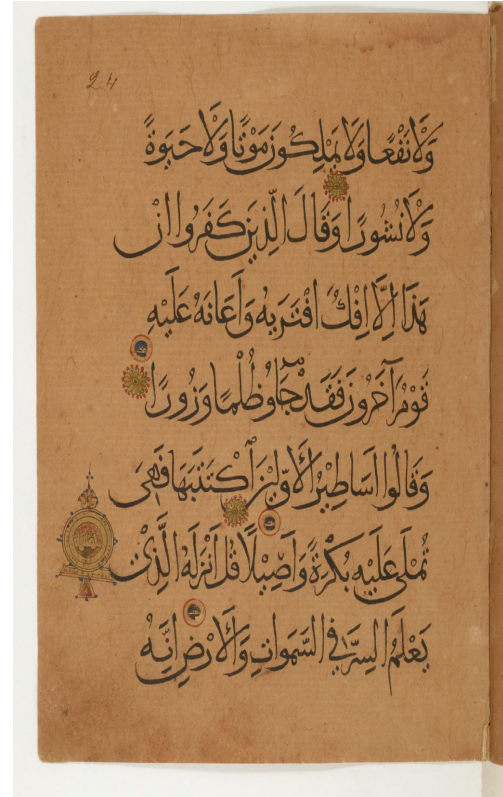 24
وَلَا نَفْعًا وَلَا يَمْلِكُونَ مَوْتًا وَلَا حَيَوةً
وَلَا نُشُورًا وَقَالَ الَّذِينَ كَفَرُوا اِنْ
هَذَا اِلَّا اِفْكٌ افْتَرَيهُ وَاَعَانَهُ عَلَيْهِ
قَوْمٌ آخَرُونَ فَقَدْ جَآؤُ ظُلْمًا وَزُورًا
وَقَالُوا اَسَاطِيرُ الْاَوَّلِينَ اكْتَتَبَهَا فَهِىَ
تُمْلَى عَلَيْهِ بُكْرَةً وَاَصِيلًا قُلْ اَنْزَلَهُ الَّذِىْ
يَعْلَمُ السِّرَّ فِى السَّمَوَاتِ وَالْاَرْضِ اِنَّهُ